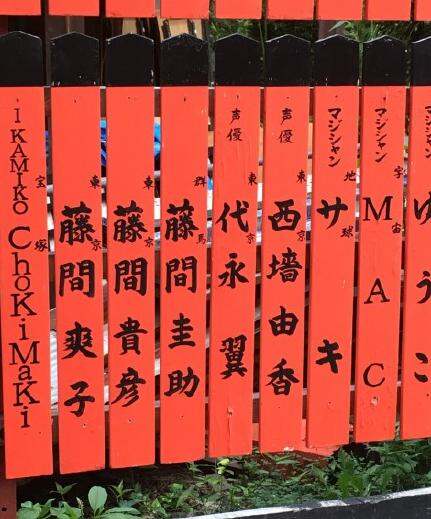 マジシャン
ゆうこ
マジシャン
宇宙
MAC
マジシャン
地球
サキ
声優
東京
西墻由香
声優
東京
代永翼
群馬
藤間圭助
東京
藤間貴彦
東京
藤間爽子
宝塚
IKAMIKO ChoKiMaKi